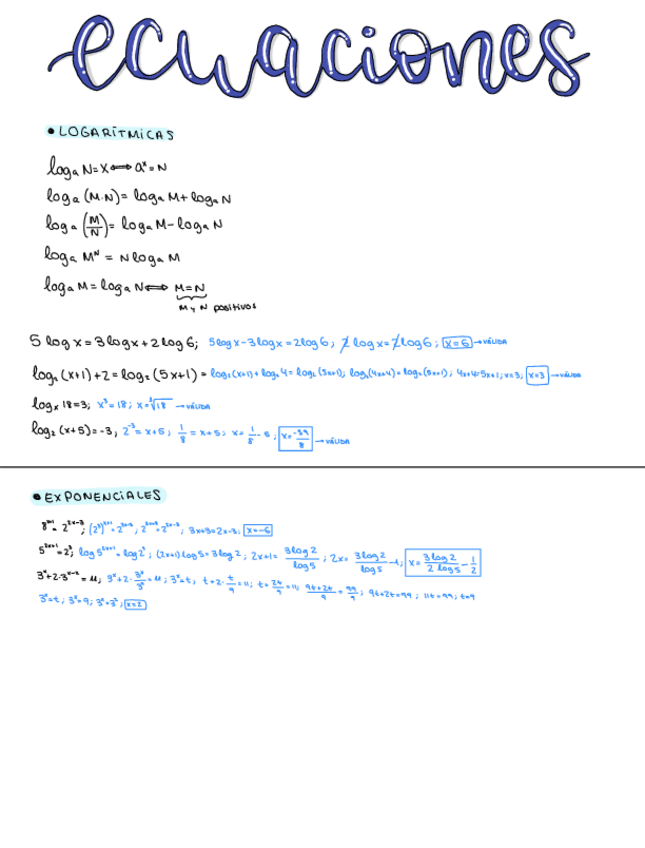 ecuaciones
• LOGARÍTMICAS
logₐ N = x ⟺ aˣ = N
logₐ (M·N) = logₐ M + logₐ N
logₐ (M/N) = logₐ M - logₐ N
logₐ Mᴺ = N logₐ M
logₐ M = logₐ N ⟺ M = N
M y N positivos
5 log x = 3 log x + 2 log 6; 5 log x - 3 log x = 2 log 6; 2 log x = 2 log 6; x = 6 → VÁLIDA
log₂ (x+1) + 2 = log₂ (5x+1) = log₂ (x+1) + log₂ 4 = log₂ (5x+1); log₂ (4x+4) = log₂ (5x+1); 4x+4 = 5x+1; x = 3; x = 3 → VÁLIDA
logₓ 18 = 3; x³ = 18; x = ∛18 → VÁLIDA
log₂ (x+5) = -3; 2⁻³ = x+5; 1/8 = x+5; x = 1/8 - 5; x = -39/8 → VÁLIDA
• EXPONENCIALES
8ˣ⁺¹ = 2²ˣ⁻³; (2³)ˣ⁺¹ = 2²ˣ⁻³; 2³ˣ⁺³ = 2²ˣ⁻³; 3x+3 = 2x-3; x = -6
5²ˣ⁺¹ = 2³; log 5²ˣ⁺¹ = log 2³; (2x+1) log 5 = 3 log 2; 2x+1 = 3 log 2/log 5; 2x = 3 log 2/log 5 - 1; x = 3 log 2/2 log 5 - 1/2
3ˣ + 2·3ˣ⁻² = 11; 3ˣ + 2·3ˣ/3² = 11; 3ˣ = t; t + 2·t/9 = 11; t + 2t/9 = 11; 9t+2t/9 = 99/9; 9t + 2t = 99; 11t = 99; t = 9
3ˣ = t; 3ˣ = 9; 3ˣ = 3²; x = 2